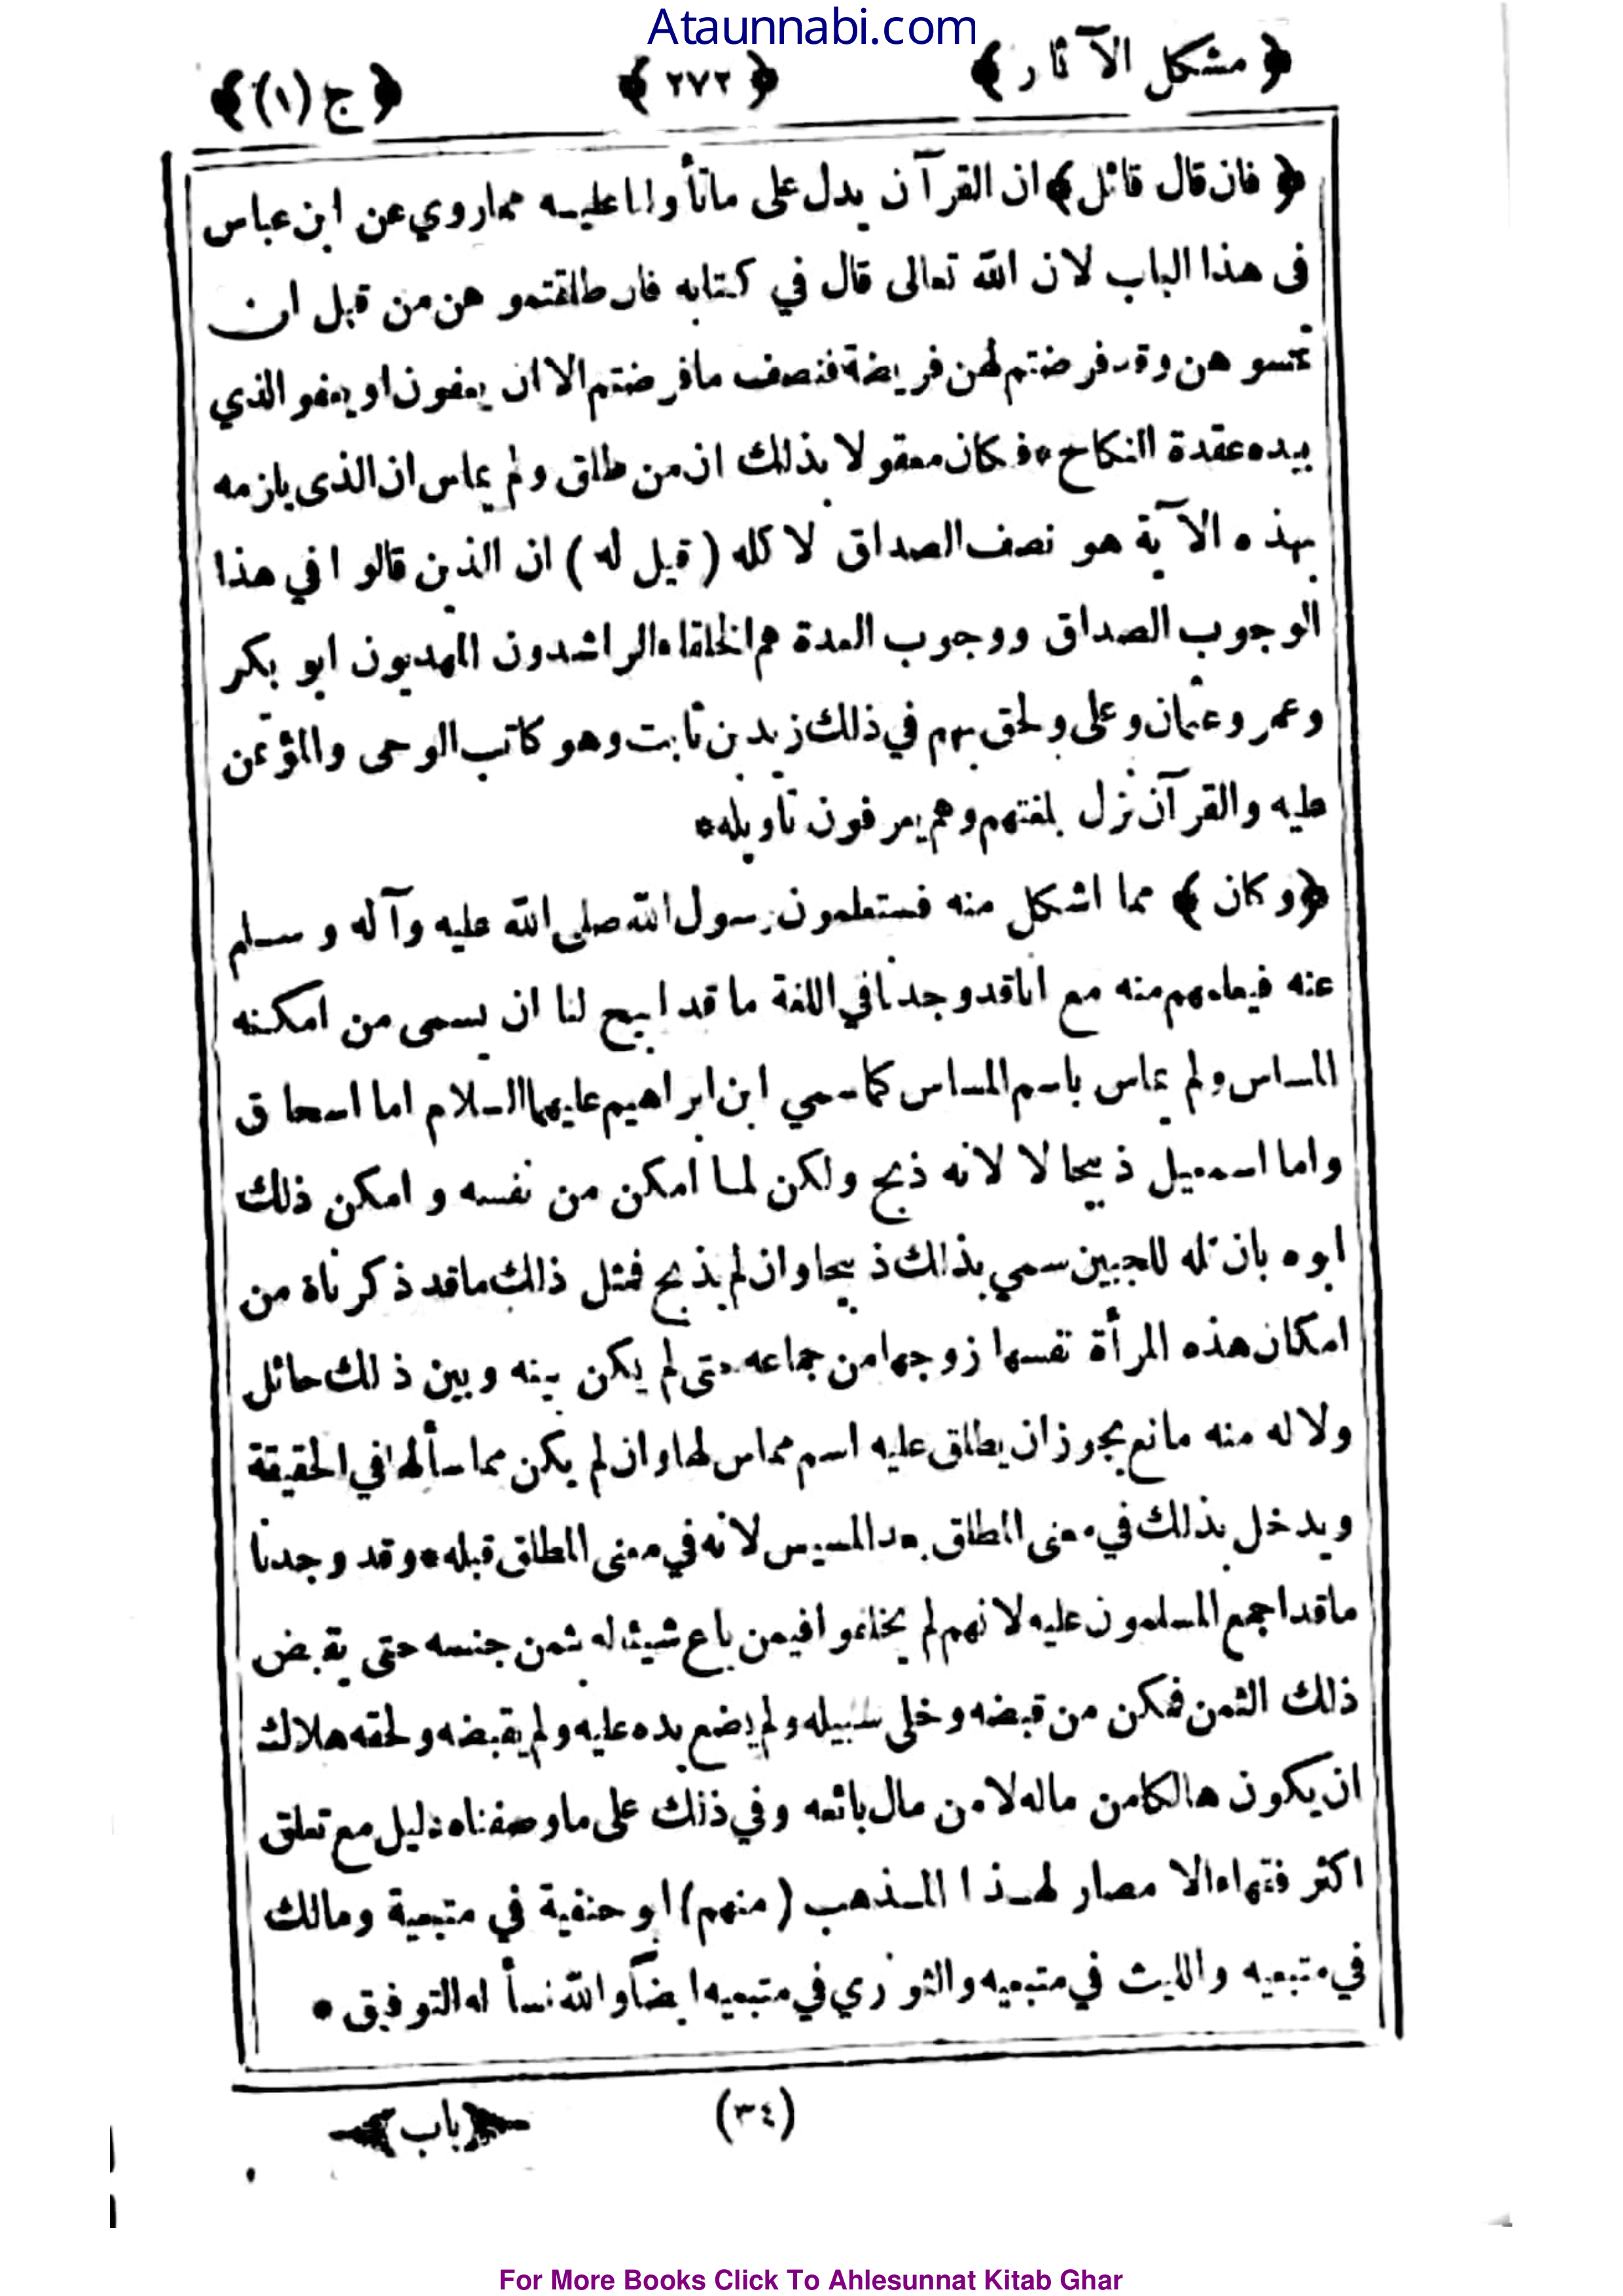 Ataunnabi.com
﴿ مشكل الآثار ﴾ ﴿ ٢٧٢ ﴾ ﴿ ج (١) ﴾
﴿ فان قال قائل ﴾ ان القرآن يدل على ماتأولنا عليه مما روي عن ابن عباس
فى هذا الباب لان الله تعالى قال في كتابه فان طلقتمو هن من قبل ان
تمسو هن وقد فرضتم لهن فريضة فنصف ما فرضتم الا ان يعفون او يعفو الذي
بيده عقدة النكاح * فكان معقولا بذلك ان من طلق ولم يماس ان الذى يلزمه
بهذه الآية هو نصف الصداق لا كله ( قيل له ) ان الذين قالوا في هذا
الوجوب الصداق ووجوب العدة هم الخلفاء الراشدون المهديون ابو بكر
وعمر وعثمان وعلى ولحق بهم في ذلك زيد بن ثابت وهو كاتب الوحى والمؤتمن
عليه والقرآن نزل بلغتهم وهم يعرفون تأويله *
﴿ وكان ﴾ مما اشكل منه فستعلمون رسول الله صلى الله عليه وآله وسلم
عنه فيعلمهم منه مع انا قد وجدنا في اللغة ما قد ابيح لنا ان يسمى من امكنه
المساس ولم يماس باسم المساس كما سمي ابن ابراهيم عليهما السلام اما اسحاق
واما اسمعيل ذبيحا لا لانه ذبح ولكن لما امكن من نفسه و امكن ذلك
ابوه بان تله للجبين سمي بذلك ذبيحا وان لم يذبح فمثل ذلك ماقد ذكرناه من
امكان هذه المرأة نفسها زوجها من جماعه حتى لم يكن بينه وبين ذلك حائل
ولا له منه مانع يجوز ان يطلق عليه اسم مماس لها وان لم يكن مماسا لها في الحقيقة
ويدخل بذلك في معنى المطلق بعد المسيس لانه في معنى المطلق قبله * وقد وجدنا
ماقد اجمع المسلمون عليه لانهم لم يختلفوا فيمن باع شيئا له بثمن جنسه حتى يقبض
ذلك الثمن فمكن من قبضه وخلى سبيله ولم يضع يده عليه ولم يقبضه ولحقه هلاك
ان يكون هالكا من ماله لا من مال بائعه وفي ذلك على ماوصفناه دليل مع تعلق
اكثر فقهاء الا مصار لهذا المذهب ( منهم ) ابو حنفية في متبعية ومالك
في متبعيه والليث في متبعيه والثوري في متبعيه ايضاً والله نسأ له التوفيق *
(٣٤) ﴿ باب ﴾
For More Books Click To Ahlesunnat Kitab Ghar